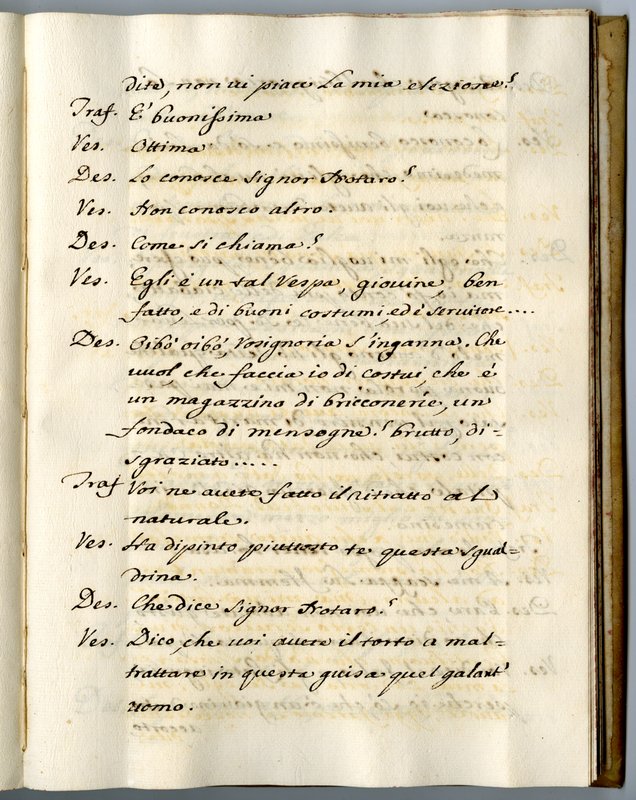 dite, non vi piace la mia elezione?
Traf. E' buonissima
Ves. Ottima
Des. Lo conosce Signor Notaro?
Ves. Non conosco altro.
Des. Come si chiama?
Ves. Egli è un tal Vespa, giovine, ben
fatto, e di buoni costumi, ed è servitore....
Des. Oibò oibò, Vosignoria s'inganna. Che
vuol, che faccia io di costui, che è
un magazzino di bricconerie, un
fondaco di mensogne? brutto, di=
sgraziato.....
Traf Voi ne avete fatto il ritratto al
naturale.
Ves. Ha dipinto piuttosto te questa sgual=
drina.
Des. Che dice Signor Notaro?
Ves. Dico, che voi avete il torto a mal=
trattare in questa guisa quel galant'
uomo.